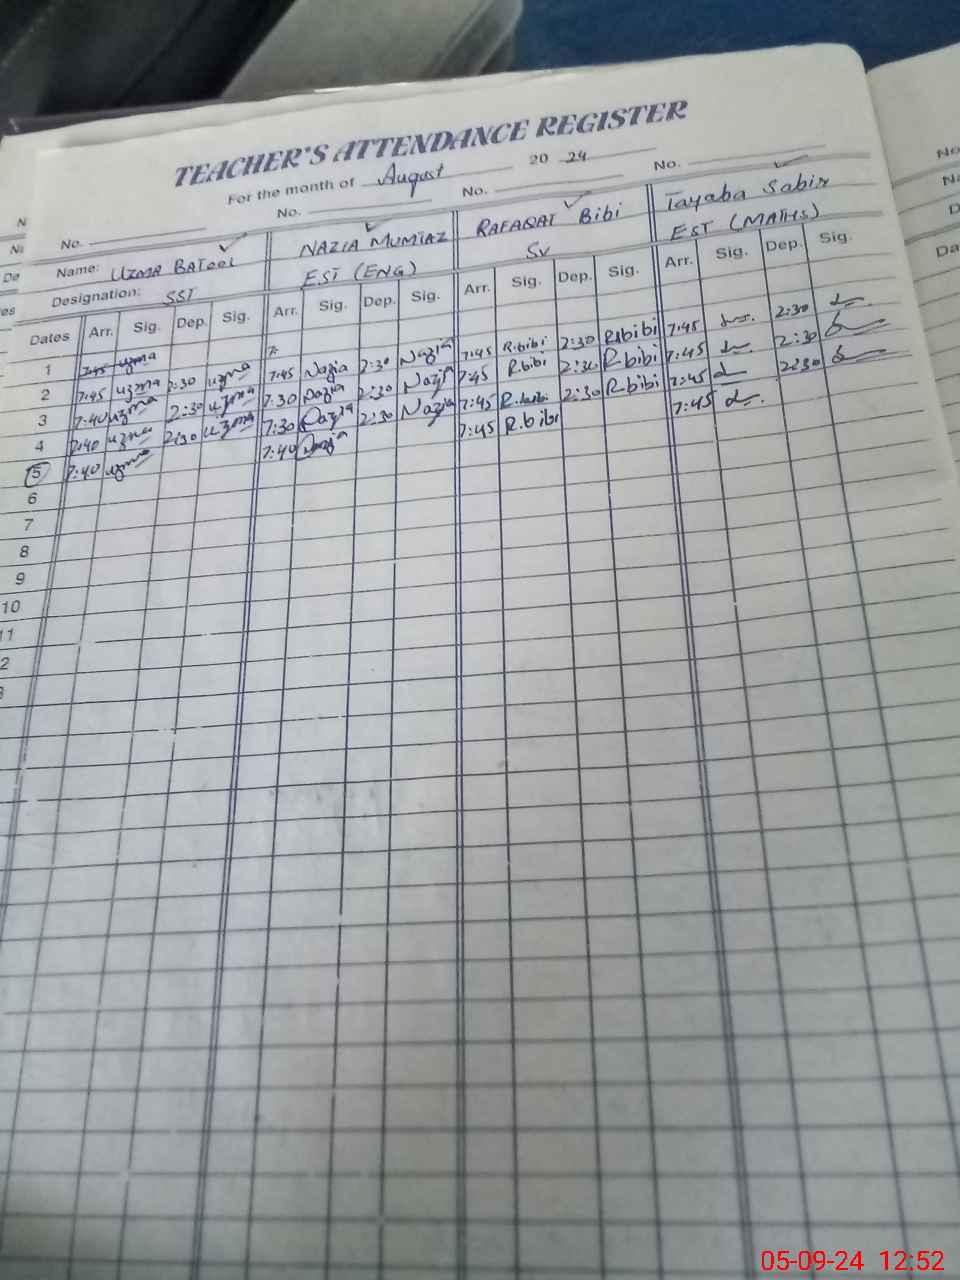 TEACHER'S ATTENDANCE REGISTER
For the month of August 20 24
No. No. No. No.
Name: UZMA BATOOL NAZIA MUMTAZ RAFAQAT Bibi Tayaba Sabir
Designation: SST EST (ENG) SV EST (MATHS)
Dates Arr. Sig. Dep. Sig. Arr. Sig. Dep. Sig. Arr. Sig. Dep. Sig. Arr. Sig. Dep. Sig.
1 7:45 uzma 7:
2 7:45 uzma 2:30 uzma 7:45 Nazia 2:30 Nazia 7:45 R.bibi 2:30 R.bibi 7:45 2:30
3 7:40 uzma 2:30 uzma 7:30 Nazia 2:30 Nazia 7:45 R.bibi 2:30 R-bibi 7:45 2:30
4 7:40 uzma 2:30 uzma 7:30 Nazia 2:30 Nazia 7:45 R.bibi 2:30 R-bibi 7:45 2:30
5 7:40 uzma 7:40 Nazia 7:45 R.bibi 7:45
6
7
8
9
10
11
2
3
05-09-24 12:52